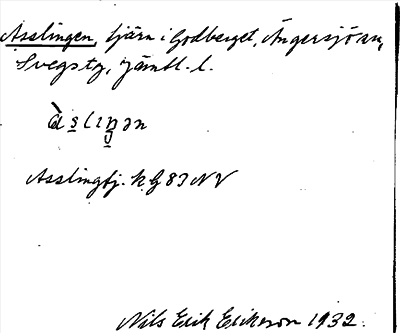 Asslingen, tjärn i Godberget, Ängersjö sn,
Svegs tg, Jämtl. l.
àslıŋən
Asslingtj. K.G 83 NV
Nils Erik Erikson 1932.